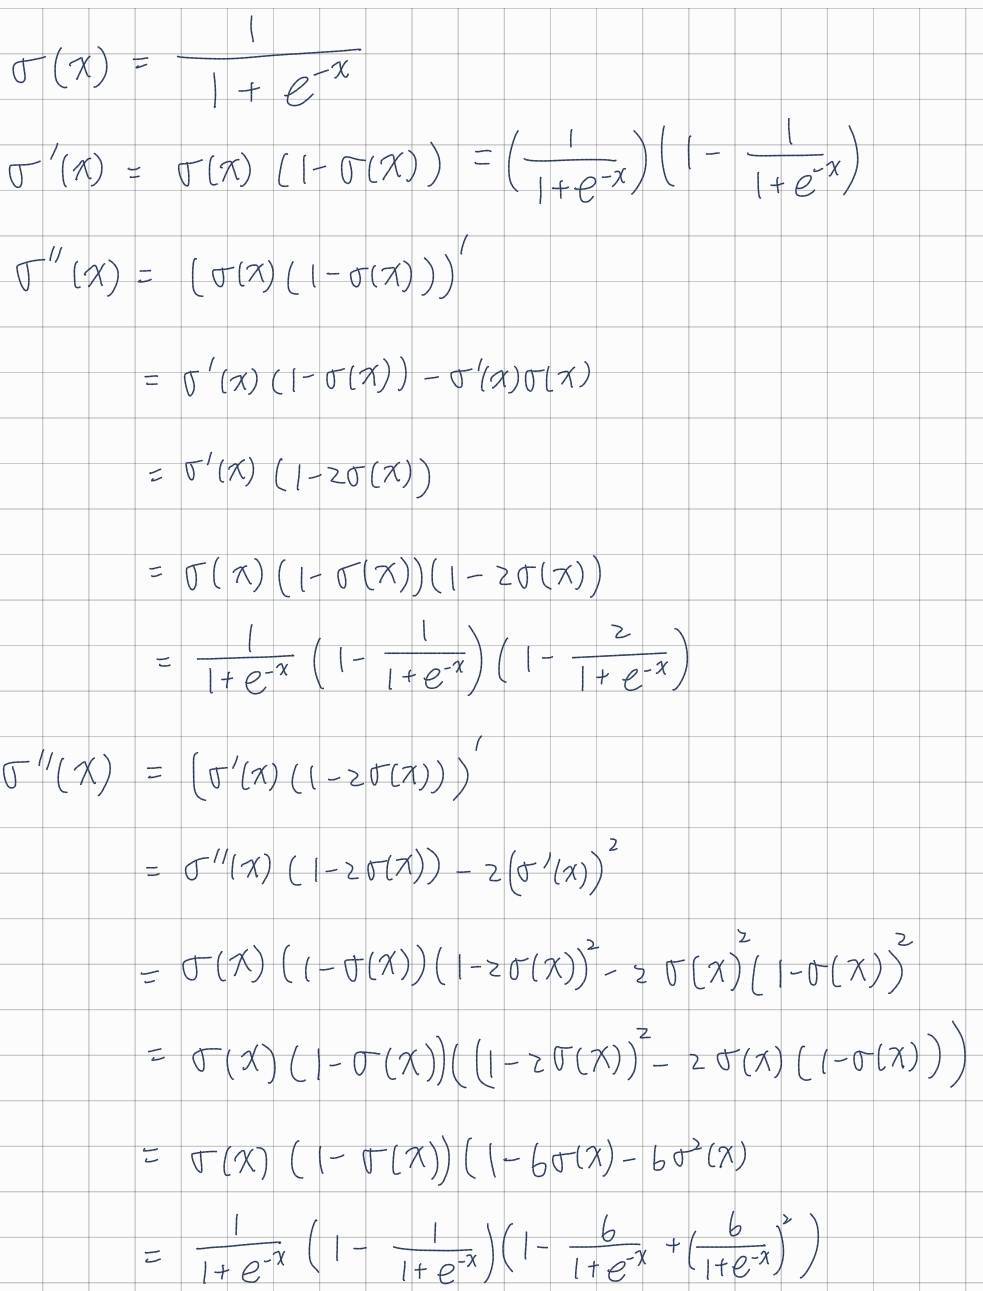 σ(x) = 1/(1 + e^{-x})
σ'(x) = σ(x) (1-σ(x)) = (1/(1+e^{-x}))(1 - 1/(1+e^{-x}))
σ''(x) = (σ(x)(1-σ(x)))'
= σ'(x)(1-σ(x)) - σ'(x)σ(x)
= σ'(x) (1-2σ(x))
= σ(x)(1-σ(x))(1-2σ(x))
= 1/(1+e^{-x}) (1 - 1/(1+e^{-x}))(1 - 2/(1+e^{-x}))
σ''(x) = (σ'(x)(1-2σ(x)))'
= σ''(x)(1-2σ(x)) - 2(σ'(x))^2
= σ(x)(1-σ(x))(1-2σ(x))^2 - 2σ(x)^2(1-σ(x))^2
= σ(x)(1-σ(x))((1-2σ(x))^2 - 2σ(x)(1-σ(x)))
= σ(x)(1-σ(x))(1-6σ(x)-6σ^2(x)
= 1/(1+e^{-x}) (1 - 1/(1+e^{-x}))(1 - 6/(1+e^{-x}) + (6/(1+e^{-x}))^2)